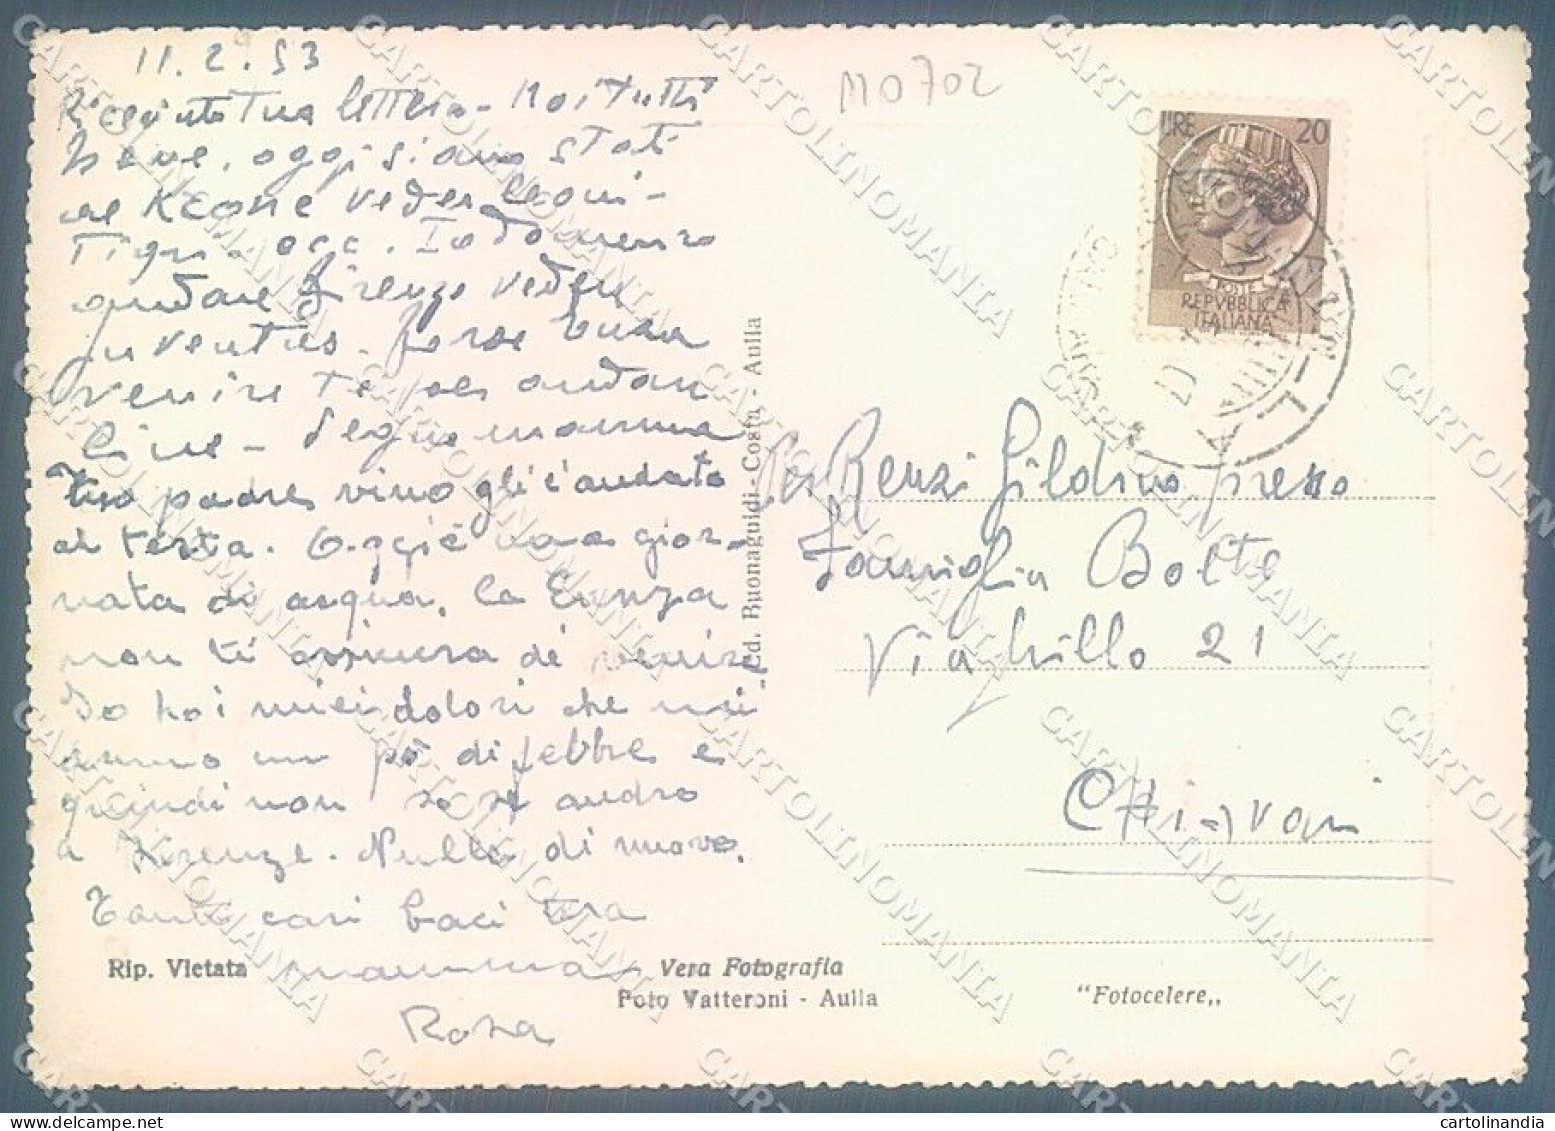 11.2.53
M0702
Ricevuto tua lettera - Noi tutti
bene, oggi siamo stati
veder
Tigri - occ. Io dovrei
andare Firenze vedere
Juventus. forse
venire te
Segue mamma
Tuo padre vino gli è andato
at testa. Oggi è una gior-
nata di acqua, la Enza
non ti assicura di venire
Io ho i miei dolori che mi
danno un pò di febbre e
quindi non so se andrò
a Firenze. Nulla di nuovo.
Tanti cari baci tua
mamma
Rosa
LIRE 20
POSTE
REPVBBLICA
ITALIANA
Ed. Buonaguidi-Costa - Aulla
Renzi Gildino presso
Famiglia Bolte
Via 21
Chiavari
Rip. Vietata
Vera Fotografia
Foto Vatteroni - Aulla
"Fotocelere„
CARTOLINOMANIA
cartolinandia